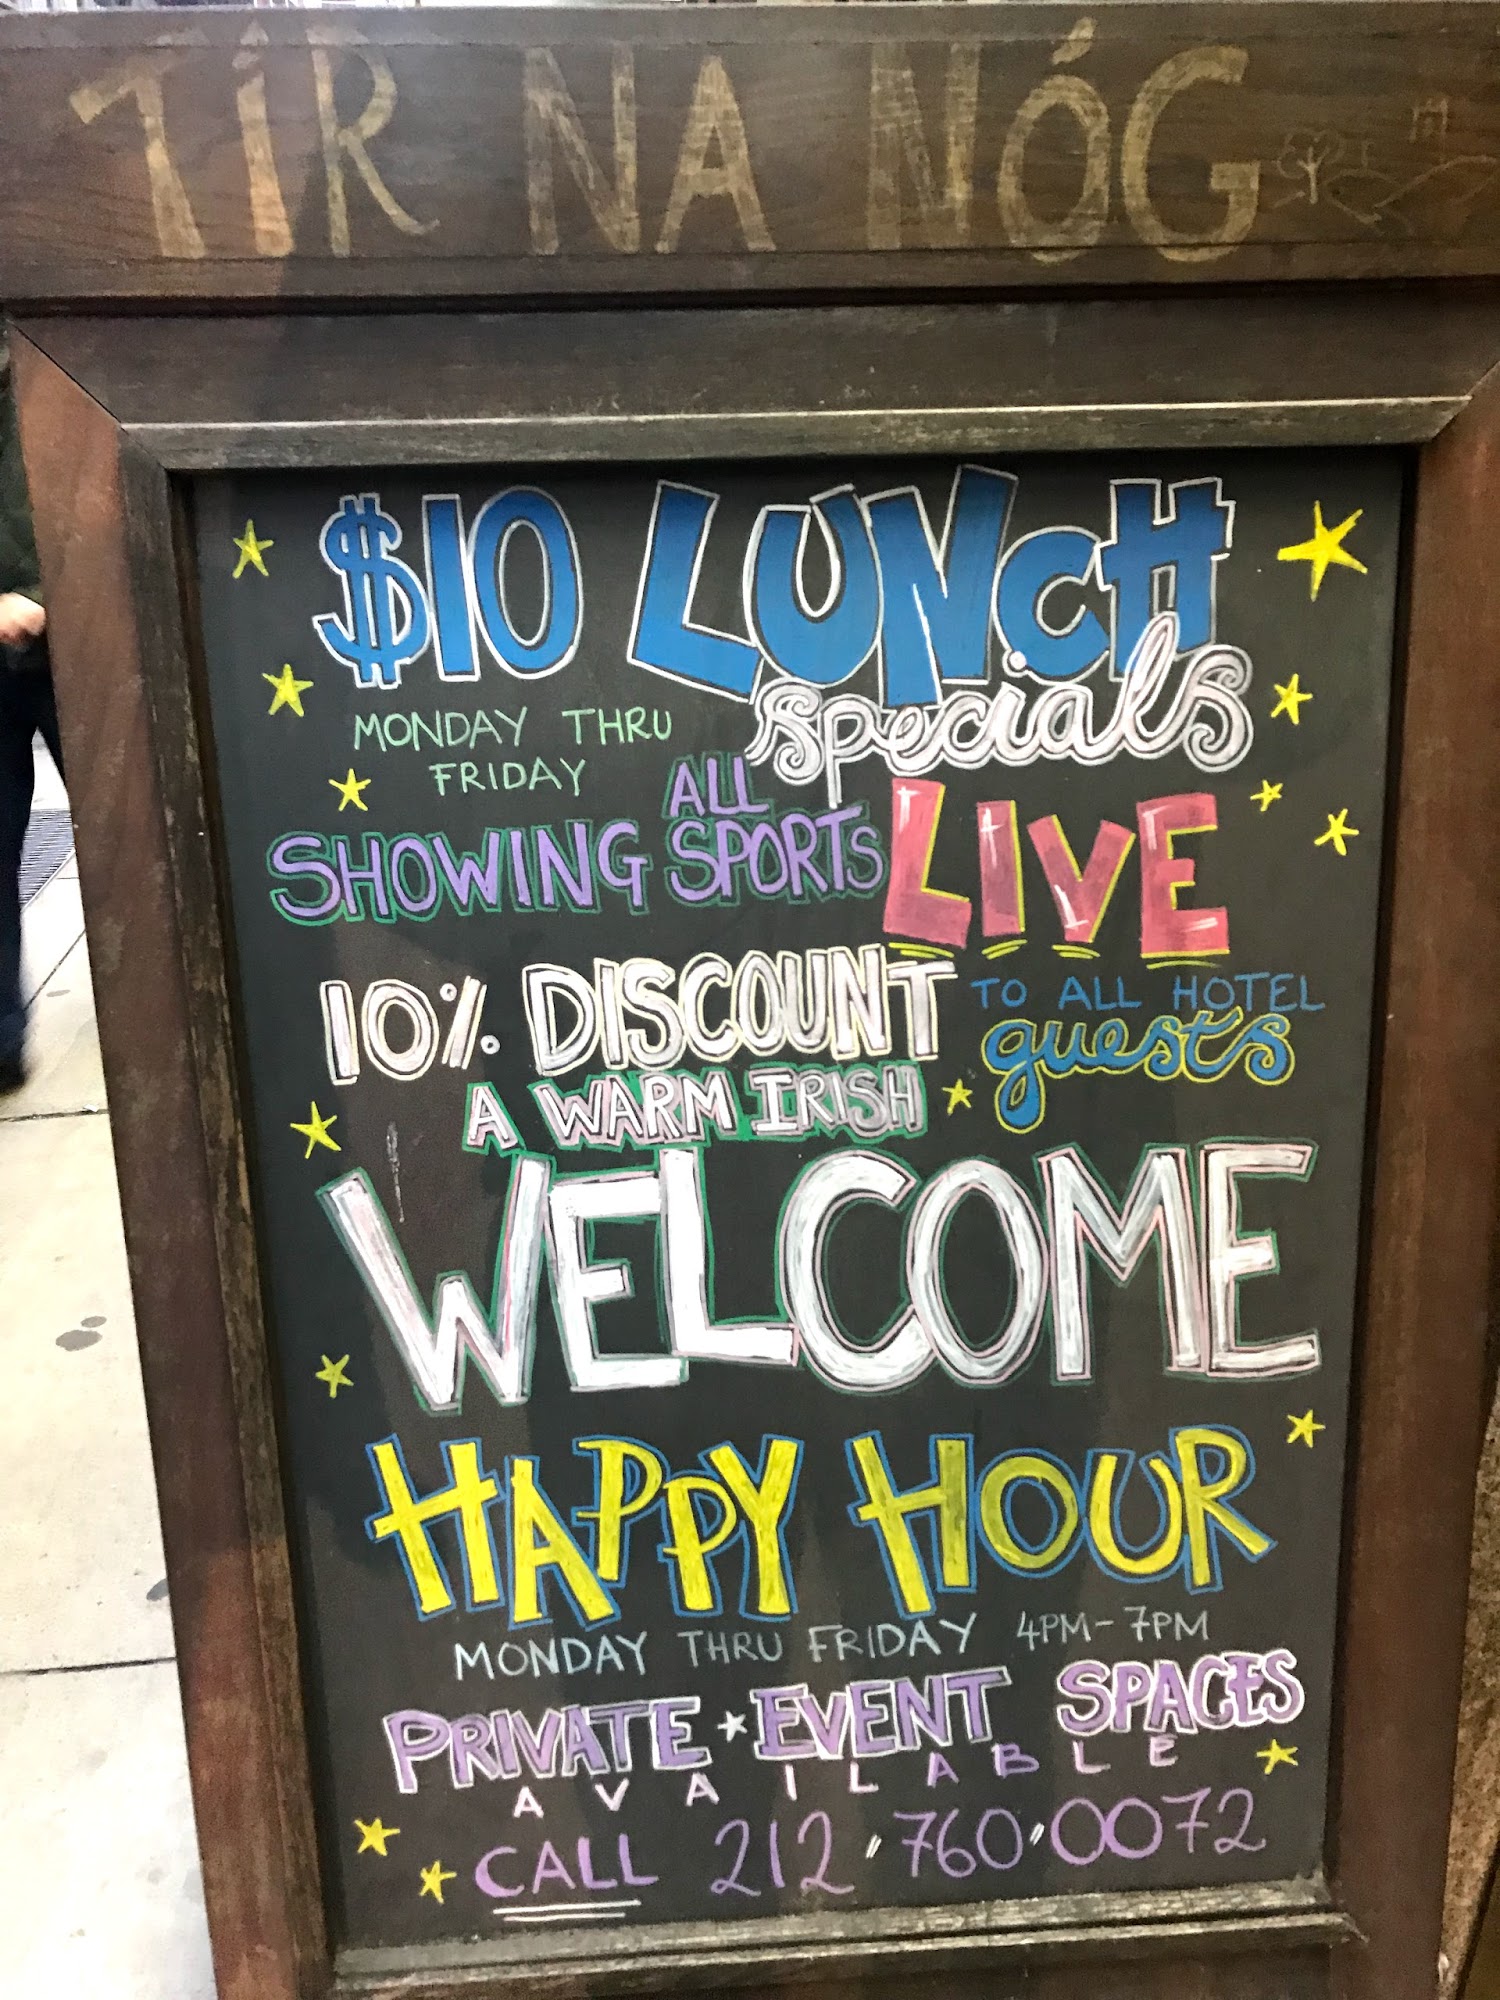 TÍR NA NÓG
$10 LUNCH
specials
MONDAY THRU
FRIDAY
SHOWING ALL SPORTS LIVE
10% DISCOUNT TO ALL HOTEL
guests
A WARM IRISH
WELCOME
HAPPY HOUR
MONDAY THRU FRIDAY 4PM-7PM
PRIVATE EVENT SPACES
AVAILABLE
CALL 212.760.0072